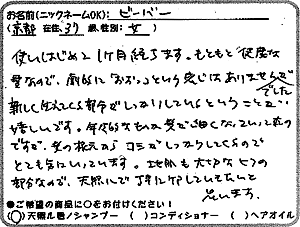 お名前(ニックネームOK): ビーバー
(京都 在住、37 歳、性別: 女)
使いはじめて1ヶ月経ちます。もともと健康な
髪なので、劇的に「おおっ」という感じはありませんでした
新しく生えてくる部分がしっかりしているということが
嬉しいです。年令的なもので髪が細くなって
ですが、髪の根元から コシがしっかりしてくるので
とても気に入っています。地肌も大切なヒフの
部分なので、天然ルで丁寧にケアしていきたいと
思います。
●ご希望の商品に○をお付けください!
(○)天然ル君ノシャンプー ( )コンディショナー ( )ヘアオイル